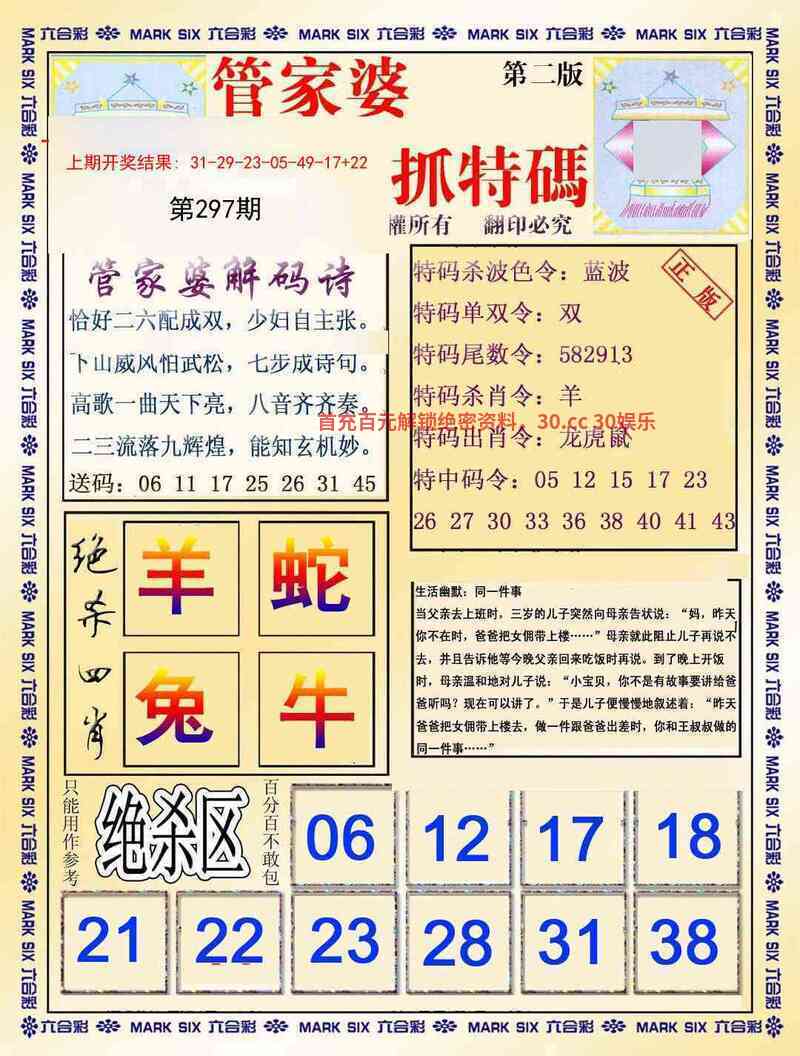 MARK SIX 六合彩 MARK SIX 六合彩 MARK SIX 六合彩 MARK SIX 六合彩
管家婆
第二版
上期开奖结果: 31-29-23-05-49-17+22
第297期
抓特碼
權所有 翻印必究
管家婆解码诗
恰好二六配成双，少妇自主张。
下山威风怕武松，七步成诗句。
高歌一曲天下亮，八音齐齐奏。
二三流落九辉煌，能知玄机妙。
送码: 06 11 17 25 26 31 45
特码杀波色令：蓝波
正版
特码单双令：双
特码尾数令：582913
特码杀肖令：羊
首充百元解锁绝密资料，30.cc 30娱乐
特码出肖令：龙虎鼠
特中码令：05 12 15 17 23
26 27 30 33 36 38 40 41 43
绝杀四肖
羊 蛇
兔 牛
生活幽默: 同一件事
当父亲去上班时，三岁的儿子突然向母亲告状说：“妈，昨天
你不在时，爸爸把女佣带上楼……”母亲就此阻止儿子再说不
去，并且告诉他等今晚父亲回来吃饭时再说。到了晚上开饭
时，母亲温和地对儿子说：“小宝贝，你不是有故事要讲给爸
爸听吗？现在可以讲了。”于是儿子便慢慢地叙述着：“昨天
爸爸把女佣带上楼去，做一件跟爸爸出差时，你和王叔叔做的
同一件事……”
只能用作参考
绝杀区
百分百不敢包
06 12 17 18
21 22 23 28 31 38
MARK SIX 六合彩 MARK SIX 六合彩 MARK SIX 六合彩 MARK SIX 六合彩